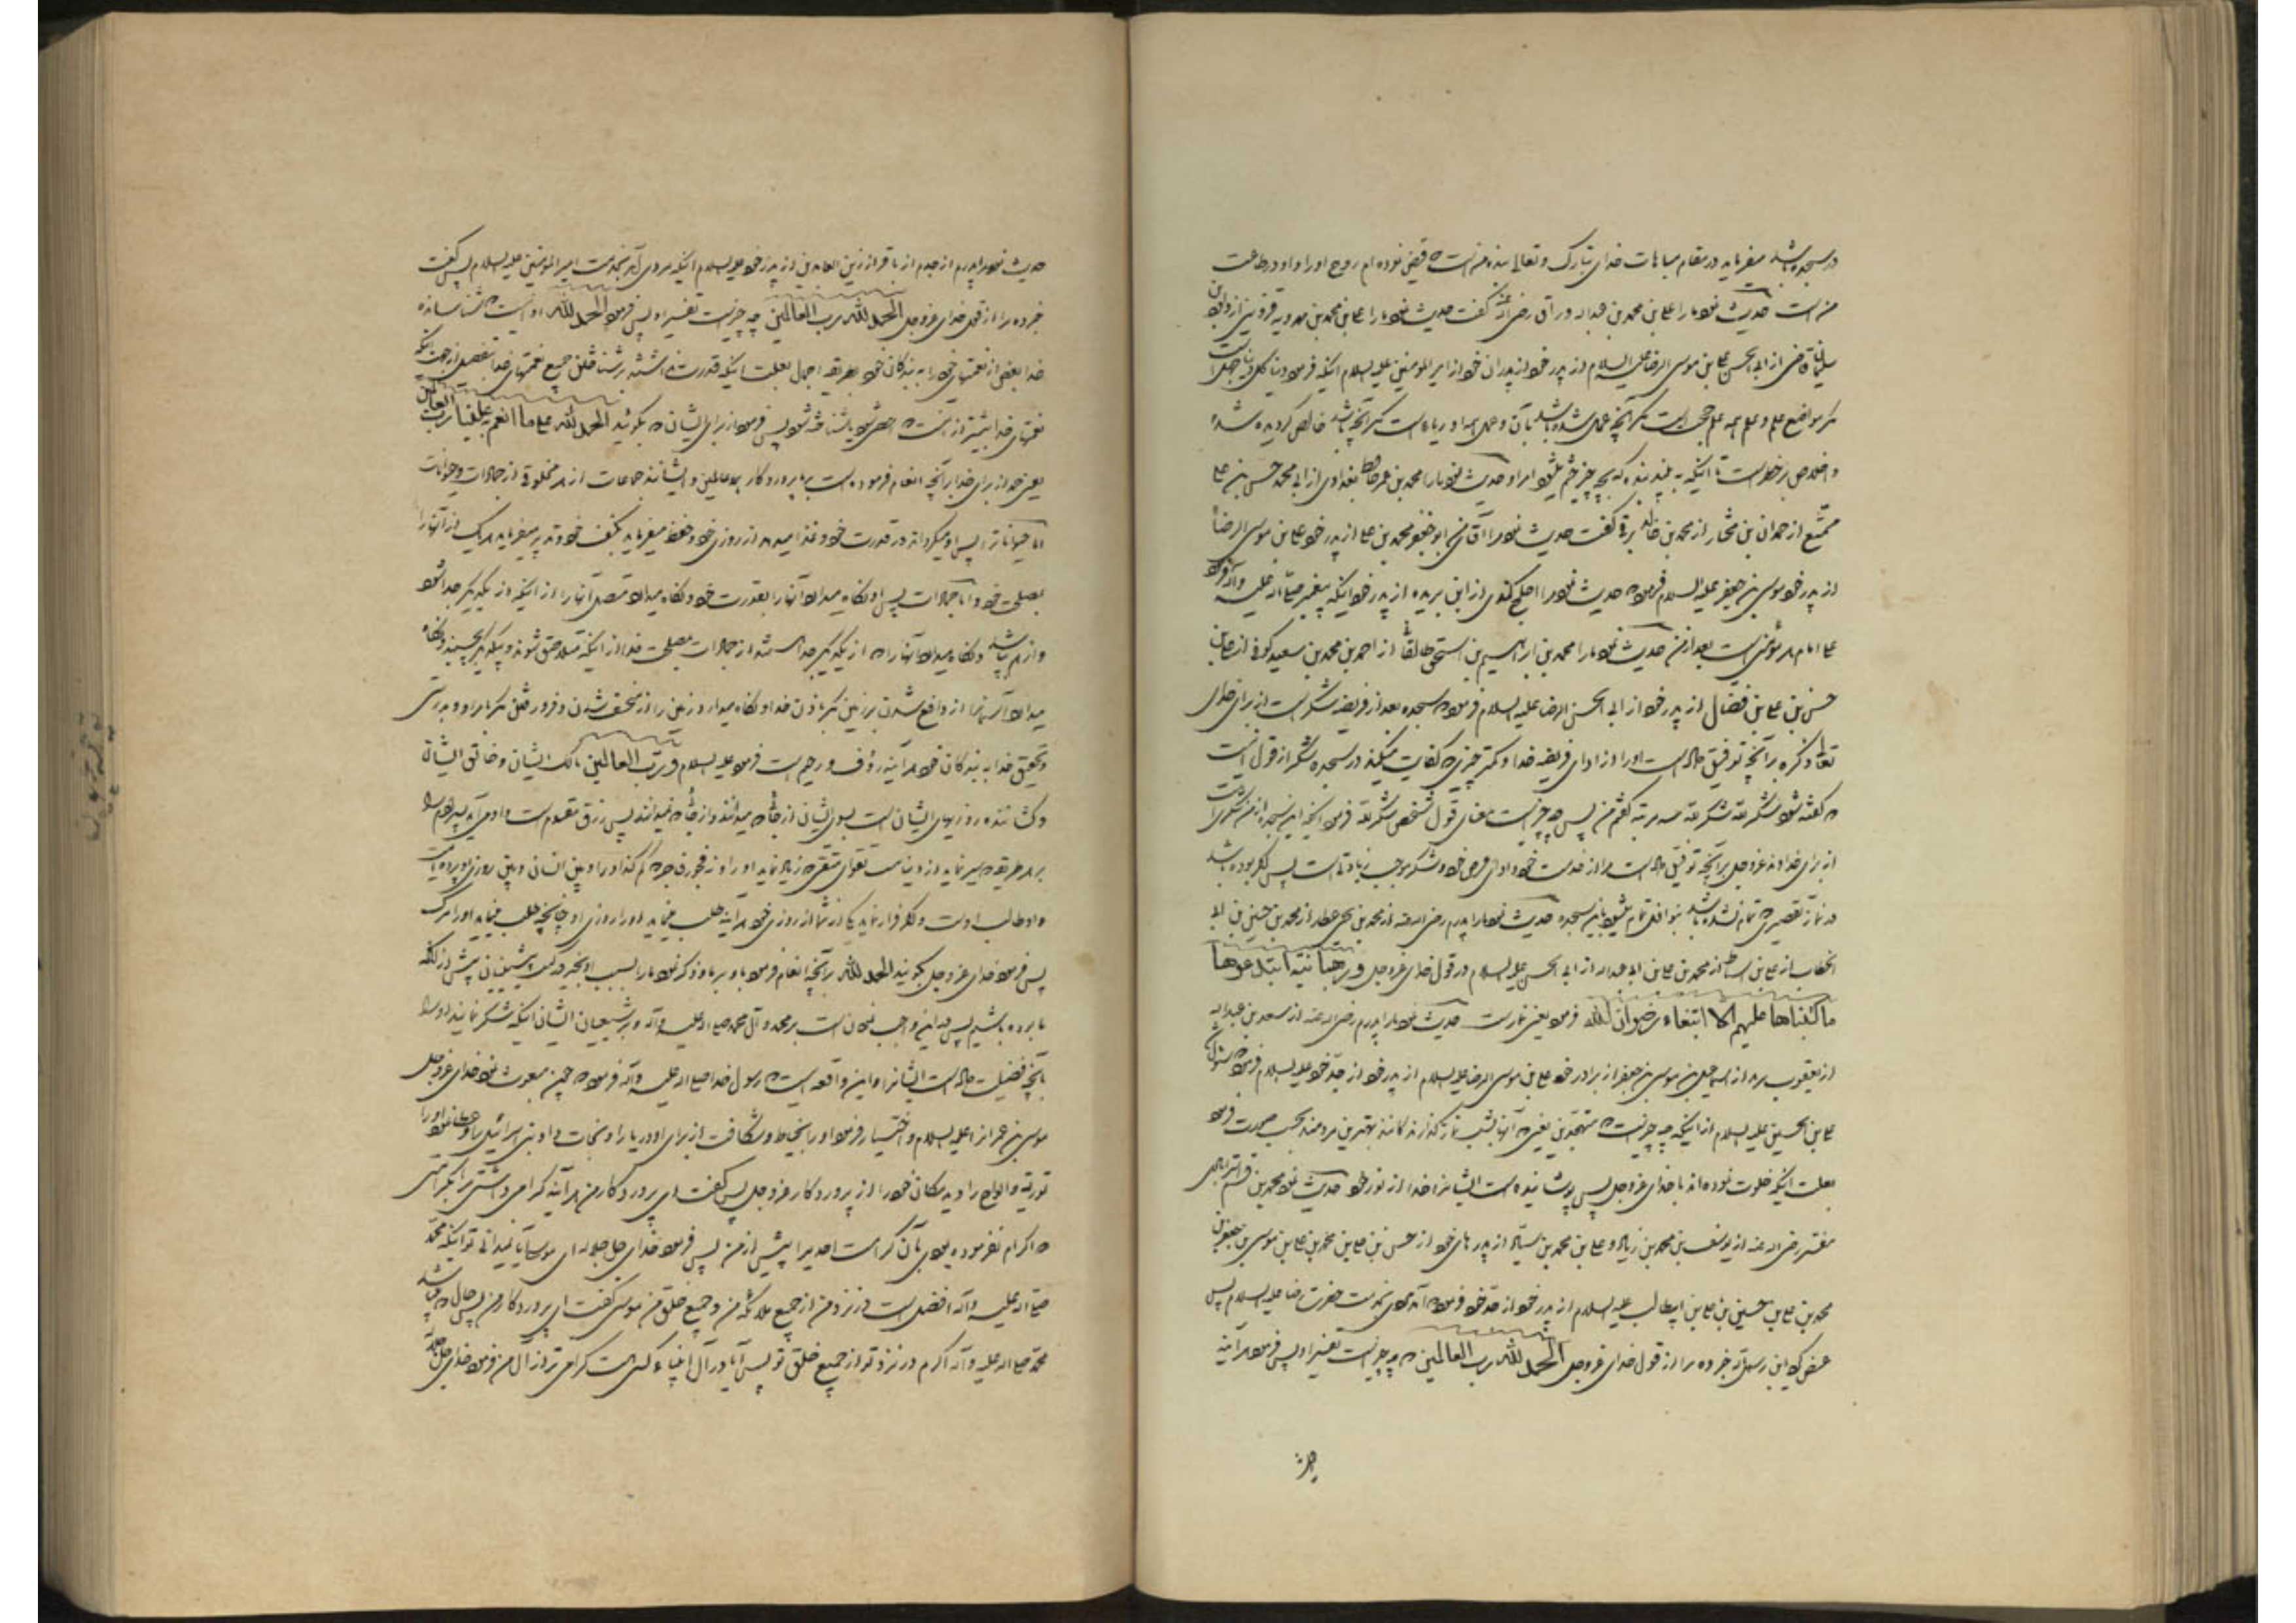 در سجده باشد میفرماید در مقام مباهات خدای تبارک و تعالی بنده منست که قبض نموده ام روح او را و او در طاعت
من است حدیث نمود ما را علی بن محمد بن عبداله وراق رضی اله عنه گفت حدیث نمود ما را علی بن محمد بن مهرویه قزوینی از داود بن
سلیمان قاضی از ابی الحسن علی بن موسی الرضا علیه السلام از پدر خود از پدران خود از امیر المومنین علیه السلام اینکه فرمود دنیا کل دنیا جهل است
مگر مواضع علم و علم همه علم حجت است مگر آنچه عمل شده باشد بآن و عمل همه او ریا است مگر آنچه باشد خالص گردیده شده
و اخلاص بر خطر است تا اینکه به بیند بنده که بچه چیز ختم میشود امر او حدیث نمود ما را محمد بن عمر حافظ بغدادی از ابی محمد حسن بن علی
ممتّع از حمدان بن مختار از محمد بن خالد برقی گفت حدیث نمود مرا آقای من ابو جعفر محمد بن علی از پدر خود علی بن موسی الرضا
از پدر خود موسی بن جعفر علیه السلام فرمود که حدیث نمود مرا اجلح کندی از ابن بریده از پدر خود اینکه پیغمبر صلی اله علیه و آله فرمود
علی امام هر مؤمنی است بعد از من حدیث نمود ما را محمد بن ابراهیم بن اسحق طالقانی از احمد بن محمد بن سعید کوفی از علی بن
حسن بن علی بن فضال از پدر خود از ابی الحسن الرضا علیه السلام فرمود که سجده بعد از فریضه شکر است از برای خدای
تعالی ذکره بر آنچه توفیق داده است او را از ادای فریضه خدا و کمتر چیزی که کفایت میکند در سجده شکر از قول اینست
که گفته شود شکراً لله شکراً لله سه مرتبه گفتم من پس چه چیز است معنای قول شخص شکراً لله فرمود اینکه این سجده از من شکر است
از برای خداوند عزوجل بر آنچه توفیق داده است مرا از خدمت خود و ادای فرض خود و شکر موجب زیادتی است پس اگر بوده باشد
در نماز تقصیری که تمام نشده باشد بنوافل تمام میشود باین سجده حدیث نمود ما را پدرم رضی اله عنه از محمد بن یحیی عطار از محمد بن حسین بن ابی
الخطاب از علی بن اسباط از محمد بن علی بن ابی عبداله از ابی الحسن علیه السلام در قول خدای عزوجل و رهبانیة ابتدعوها
ما کتبناها علیهم الا ابتغاء رضوان الله فرمود یعنی نماز شب حدیث نمود ما را پدرم رضی اله عنه از سعد بن عبداله
از یعقوب بن یزید از اسماعیل بن موسی بن جعفر از برادر خود علی بن موسی الرضا علیه السلام از پدر خود از جدّ خود علیه السلام فرمود که سئوال شد
علی بن الحسین علیه السلام از اینکه چه چیز است که متهجّدین یعنی که آنها بشب نماز گذارندگانند بهترین مردمند بحسب صورت فرمود
بعلت اینکه خلوت نموده اند با خدای عزوجل پس پوشانیده است ایشانرا خدا از نور خود حدیث نمود محمد بن قسم استرابادی
مفسّر رضی اله عنه از یوسف بن محمد بن زیاد و علی بن محمد بن سیّار از پدرهای خود از حسن بن علی بن محمد بن علی بن موسی بن جعفر بن
محمد بن علی بن حسین بن علی بن ابیطالب علیه السلام از پدر خود از جدّ خود فرمود که آمد مردی بخدمت حضرت رضا علیه السلام پس
عرض کرد یا بن رسول الله خبر ده مرا از قول خدای عزوجل الحمد لله رب العالمین که چه چیز است تفسیر او پس فرمود هر آینه
حدیث
حدیث نمود مرا پدرم از جدم از باقر از زین العابدین از پدر خود علیه السلام اینکه مردی آمد بخدمت امیر المومنین علیه السلام پس گفت
خبر ده مرا از قول خدای عزوجل الحمد لله رب العالمین چه چیز است تفسیر او پس فرمود الحمد لله او اینست که شناسانده
خدا بعض از نعمتهای خود را به بندگان خود بطریقه اجمال بعلت اینکه قدرت نداشتند بر شناختن جمیع نعمتهای خدا بتفصیل از جهت اینکه
نعمتهای خدا بیشتر از اینست که احصی شود یا شناخته شود پس فرمود از برای ایشان که بگوئید الحمد لله علی ما انعم به علینا رب العالمین
یعنی حمد از برای خدا بر آنچه انعام فرموده است بر ما پروردگار عالمین و ایشانند جماعات از هر مخلوقی از جمادات و حیوانات
اما حیوانات پس او میگرداند در قدرت خود و غذا میدهد از روزی خود و حفظ میفرماید بکنف خود و تدبیر میفرماید هر یک از آنها را
بمصلحت خود و اما جمادات پس او نگاه میدارد آنها را بقدرت خود و نگاه میدارد متصل آنها را از اینکه از یکدیگر جدا شود
و از هم بپاشد و نگاه میدارد آنها را که از یکدیگر جدا شدند از جمادات بمصلحت خدا از اینکه متلاصق شوند و بیکدیگر بچسبند و نگاه
میدارد آسمانرا از واقع شدن بر زمین مگر باذن خدا و نگاه میدارد زمین را از منخسف شدن و فرو رفتن مگر بامر او و بدرستی
و تحقیق خدا به بندگان خود هر آینه رؤف و رحیم است فرمود علیه السلام و رب العالمین مالک ایشان و خالق ایشان
و کشاننده روزیهای ایشان است بسوی ایشان از جائی که میدانند و از جائی که نمیدانند پس رزق مقسوم است و او می آید پسر آدم را
بر هر طریقه که سیر نماید از دنیا نیست تقوای متقی که زیاد نماید او را و نه فجور فاجری که کم کند او را و بین انسان و بین روزی او پرده ایست
و او طالب اوست و اگر فرار نماید یکی از شما از روزی خود هر آینه طلب مینماید او را روزی او چنانچه طلب مینماید او را مرگ
پس فرمود خدای عزوجل بگوئید الحمد لله بر آنچه انعام فرمود باو بر ما و ذکر نمود ما را بسبب او بخیر در کتب پیشینیان پیش از آنکه
ما بوده باشیم پس در این واجب نمودن است بر محمد و آل محمد صلی اله علیه و آله و بر شیعیان ایشان اینکه شکر نمایند او را
بآنچه فضیلت داده است ایشانرا و این واقعه است که رسول خدا صلی اله علیه و آله فرمود که چون مبعوث نمود خدای عزوجل
موسی بن عمران را علیه السلام و اختیار فرمود او را بنجات و شکافت از برای او دریا را و نجات داد بنی اسرائیل را و عطا نمود او را
توریة و الواح را دید مکان خود را از پروردگار عزوجل پس گفت ای پروردگار من هر آینه گرامی داشتی مرا بکرامتی
که اکرام نفرموده بودی بآن کرامت احدیرا پیش از من پس فرمود خدای جل جلاله ای موسی آیا نمیدانی تو اینکه محمّد
صلی اله علیه و آله افضل است در نزد من از جمیع ملائکه من و جمیع خلق من موسی گفت ای پروردگار من پس حال که میباشد
محمّد صلی اله علیه و آله اکرم در نزد تو از جمیع خلق تو پس آیا در آل انبیاء کسی هست گرامی تر از آل من فرمود خدای جل جلاله